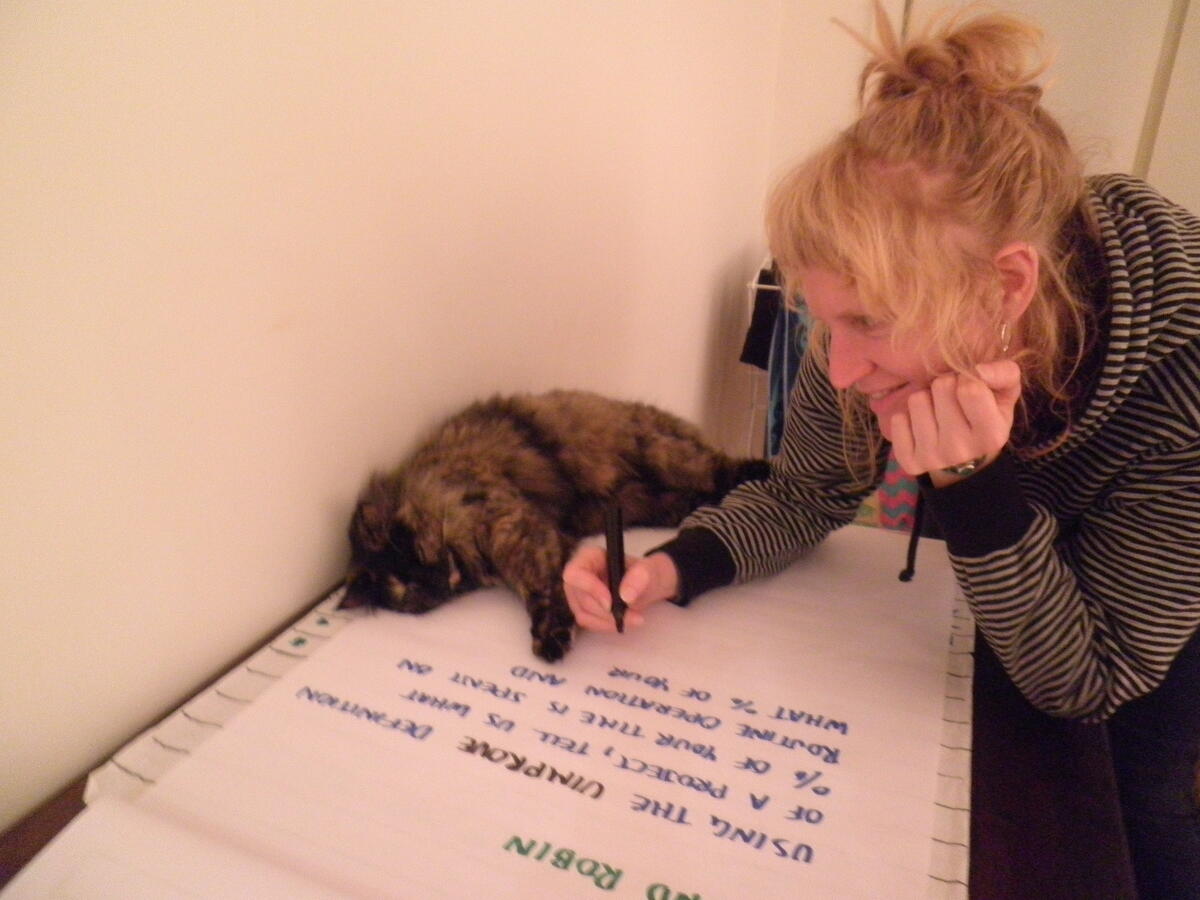 ND ROBIN
USING THE UIMPROVE DEFINITION
OF A PROJECT, TELL US WHAT
% OF YOUR TIME IS SPENT ON
ROUTINE OPERATION AND
WHAT % OF YOUR